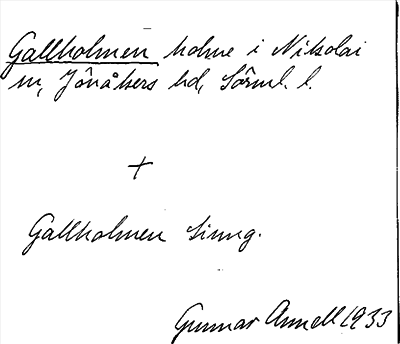 Gallholmen holme i Nikolai
sn, Jönåkers hd, Sörml. l.
+
Gallholmen Sinng.
Gunnar Annell 1933